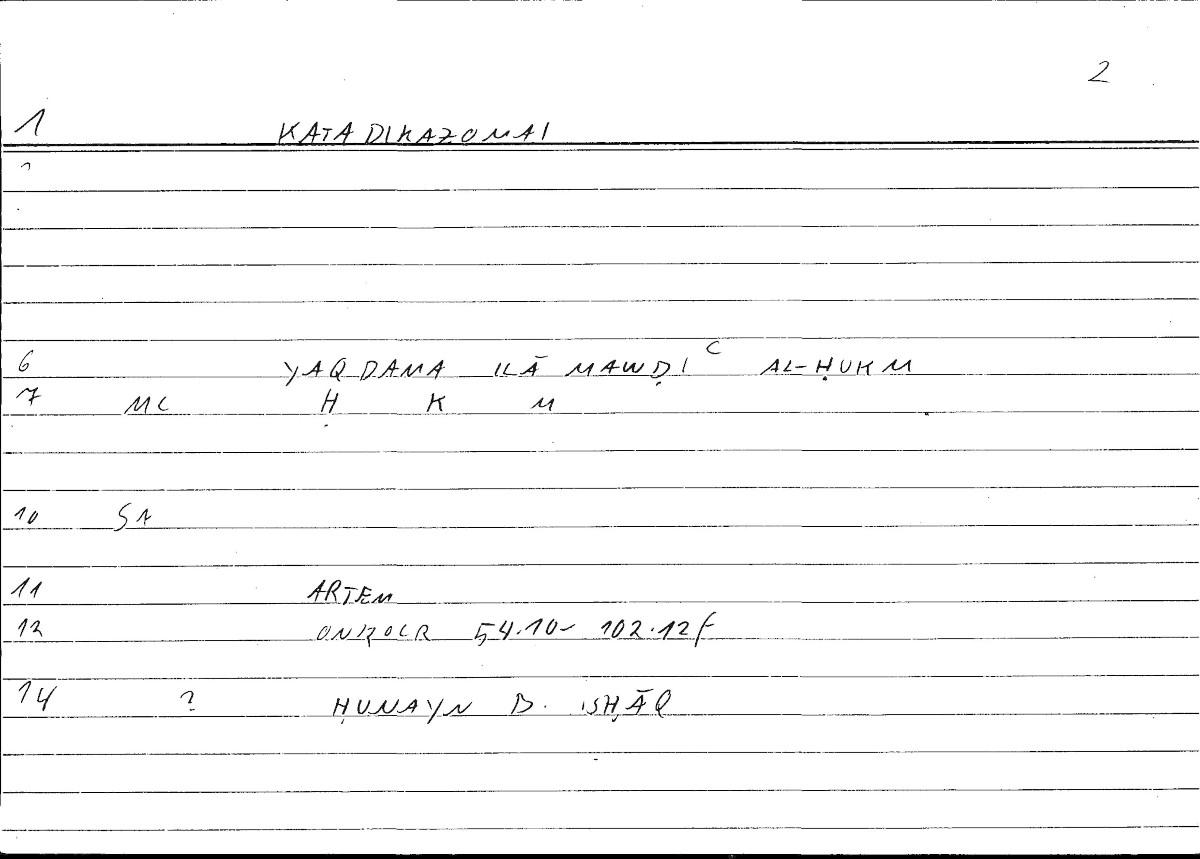 2
1 KATADIKAZOMAI
6 YAQDAMA ILĀ MAWḌIC AL-ḤUKM
7 MC Ḥ K M
10 S1
11 ARTEM
12 ONIROCR 54.10- 102.12f
14 ? ḤUNAYN B. ISḤĀQ